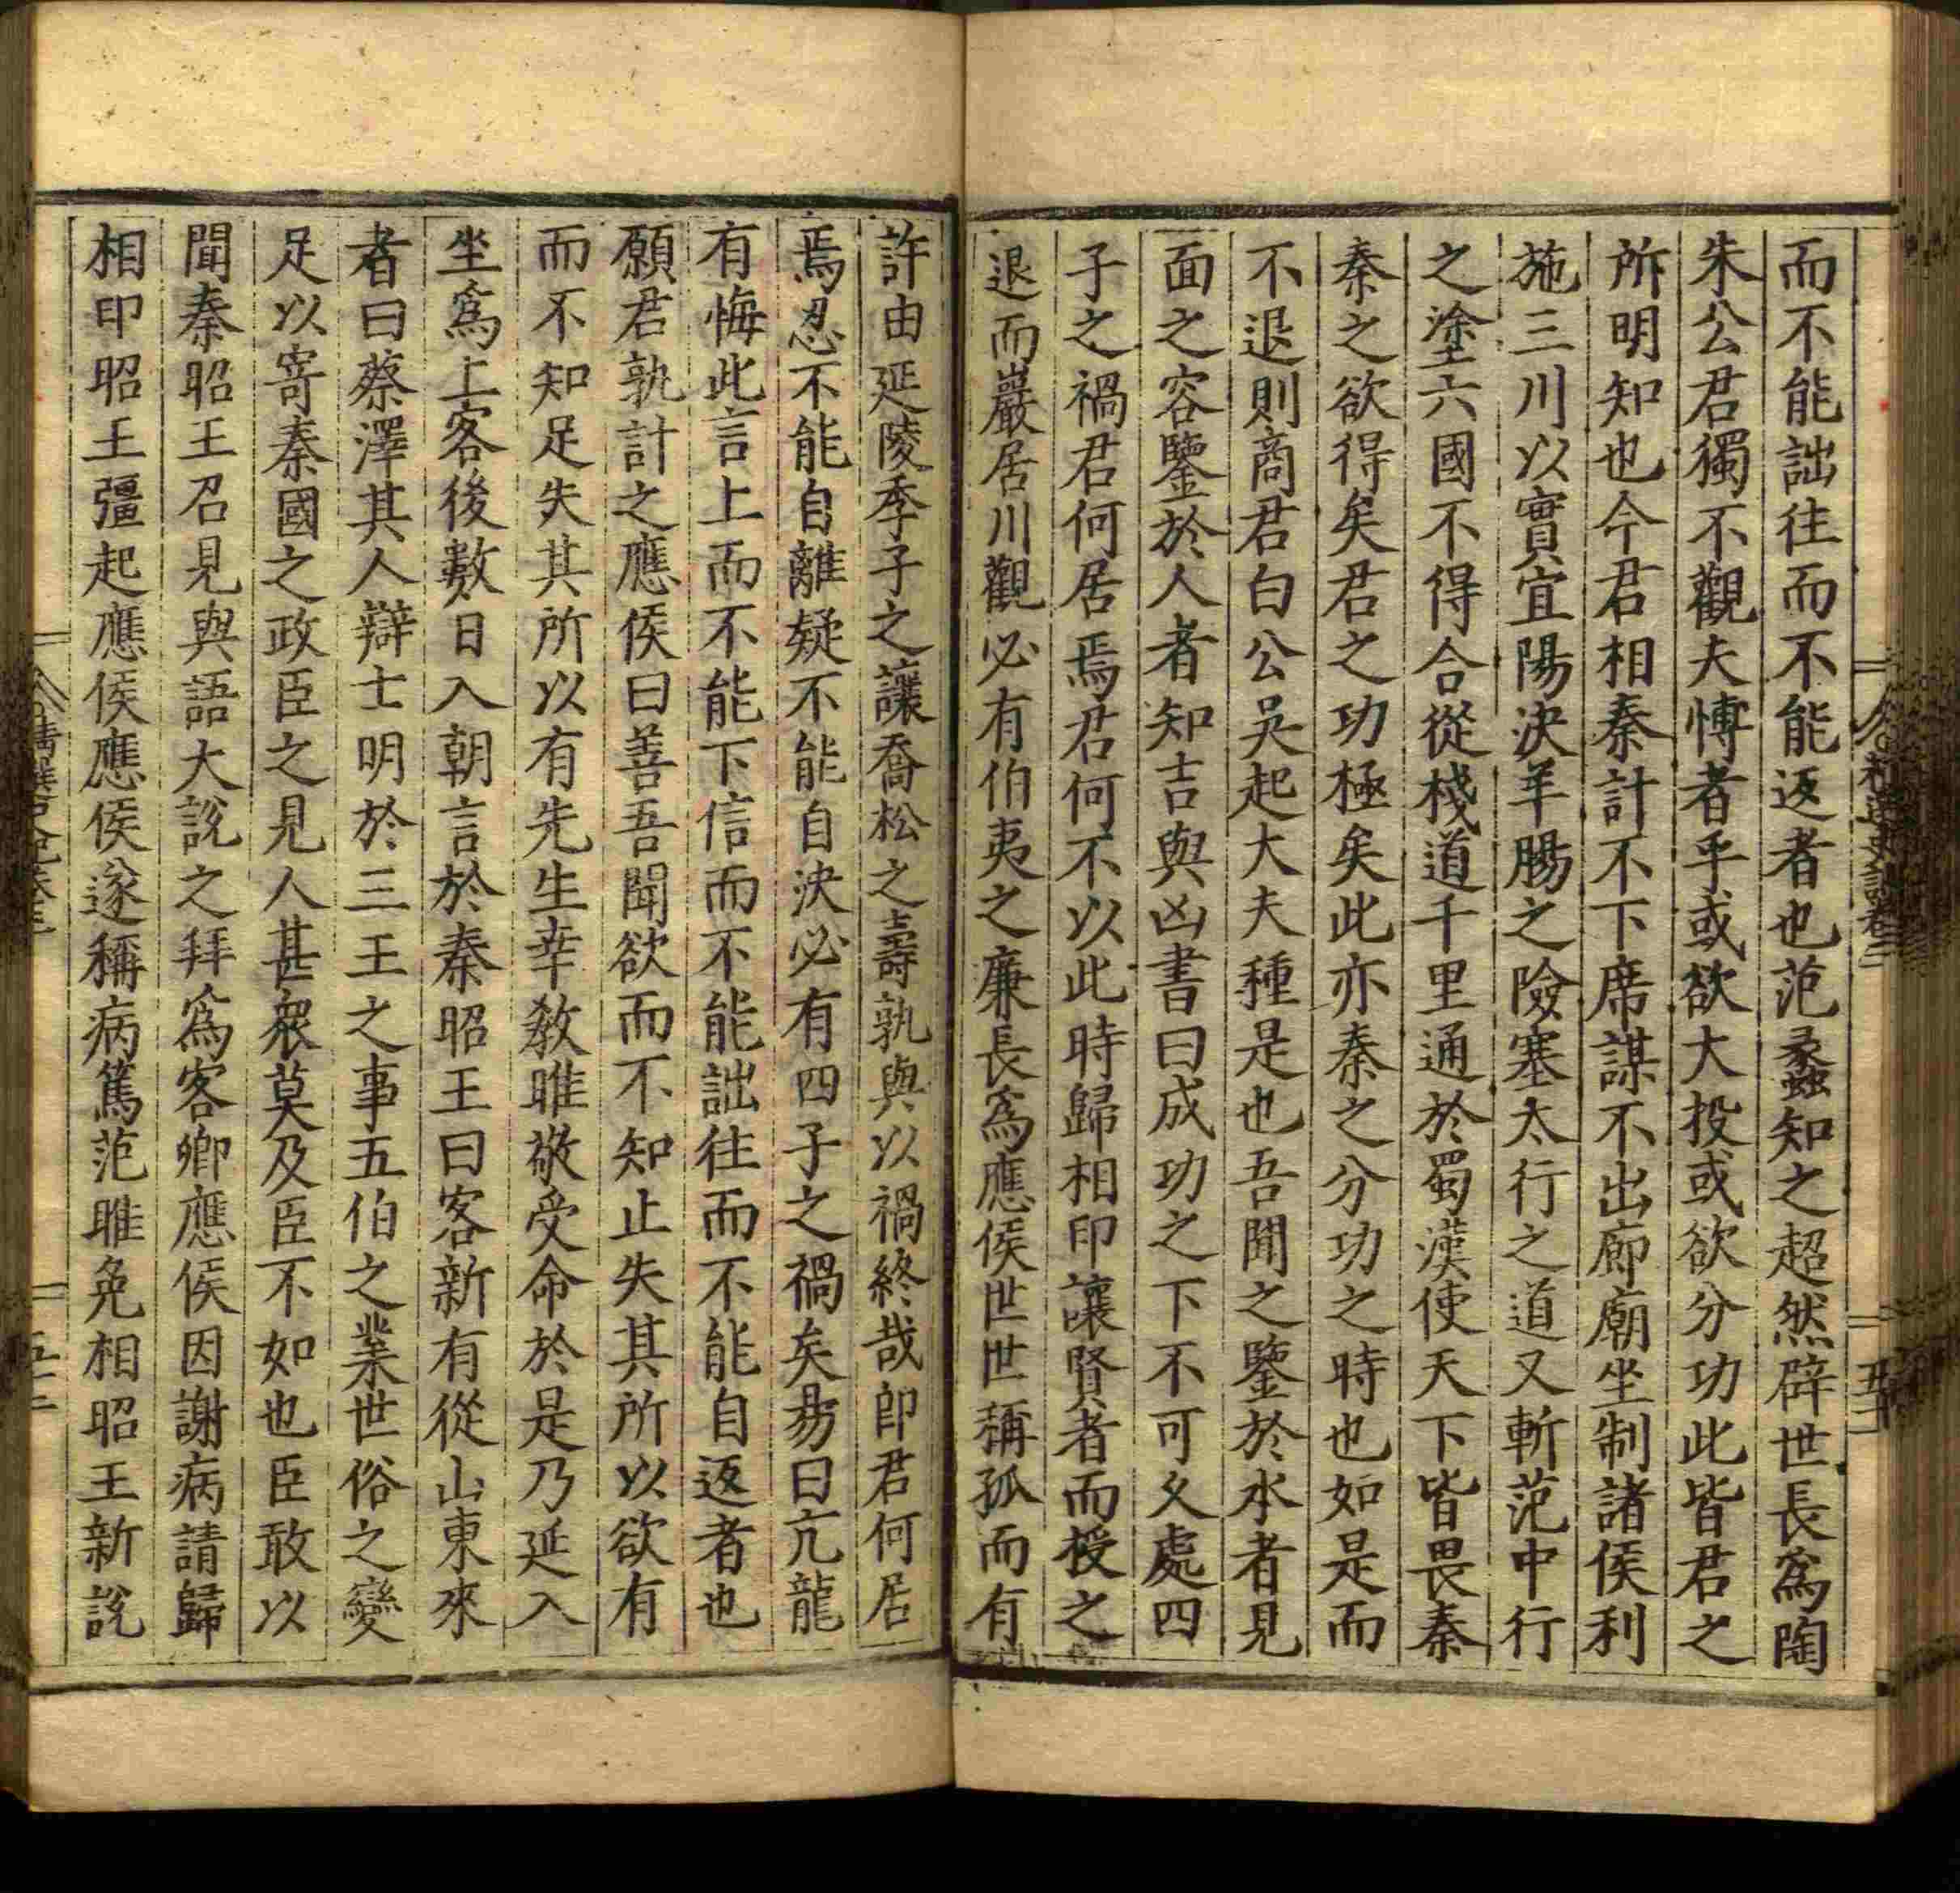 而不能詘往而不能返者也范蠡知之超然辟世長爲陶
朱公君獨不觀夫愽者乎或欲大投或欲分功此皆君之
所明知也今君相秦計不下席謀不出廊廟坐制諸侯利
施三川以實宜陽決羊腸之險塞太行之道又斬范中行
之塗六國不得合從棧道千里通於蜀漢使天下皆畏秦
秦之欲得矣君之功極矣此亦秦之分功之時也如是而
不退則商君白公吳起大夫種是也吾聞之鑒於水者見
面之容鑒於人者知吉與凶書曰成功之下不可久處四
子之禍君何居焉君何不以此時歸相印讓賢者而授之
退而巖居川觀必有伯夷之廉長爲應侯世世稱孤而有
許由延陵季子之讓喬松之壽孰與以禍終哉卽君何居
焉忍不能自離疑不能自決必有四子之禍矣易曰亢龍
有悔此言上而不能下信而不能詘往而不能自返者也
願君孰計之應侯曰善吾聞欲而不知止失其所以欲有
而不知足失其所以有先生幸敎睢敬受命於是乃延入
坐爲上客後數日入朝言於秦昭王曰客新有從山東來
者曰蔡澤其人辯士明於三王之事五伯之業世俗之變
足以寄秦國之政臣之見人甚衆莫及臣不如也臣敢以
聞秦昭王召見與語大說之拜爲客卿應侯因謝病請歸
相印昭王彊起應侯應侯遂稱病篤范睢免相昭王新說